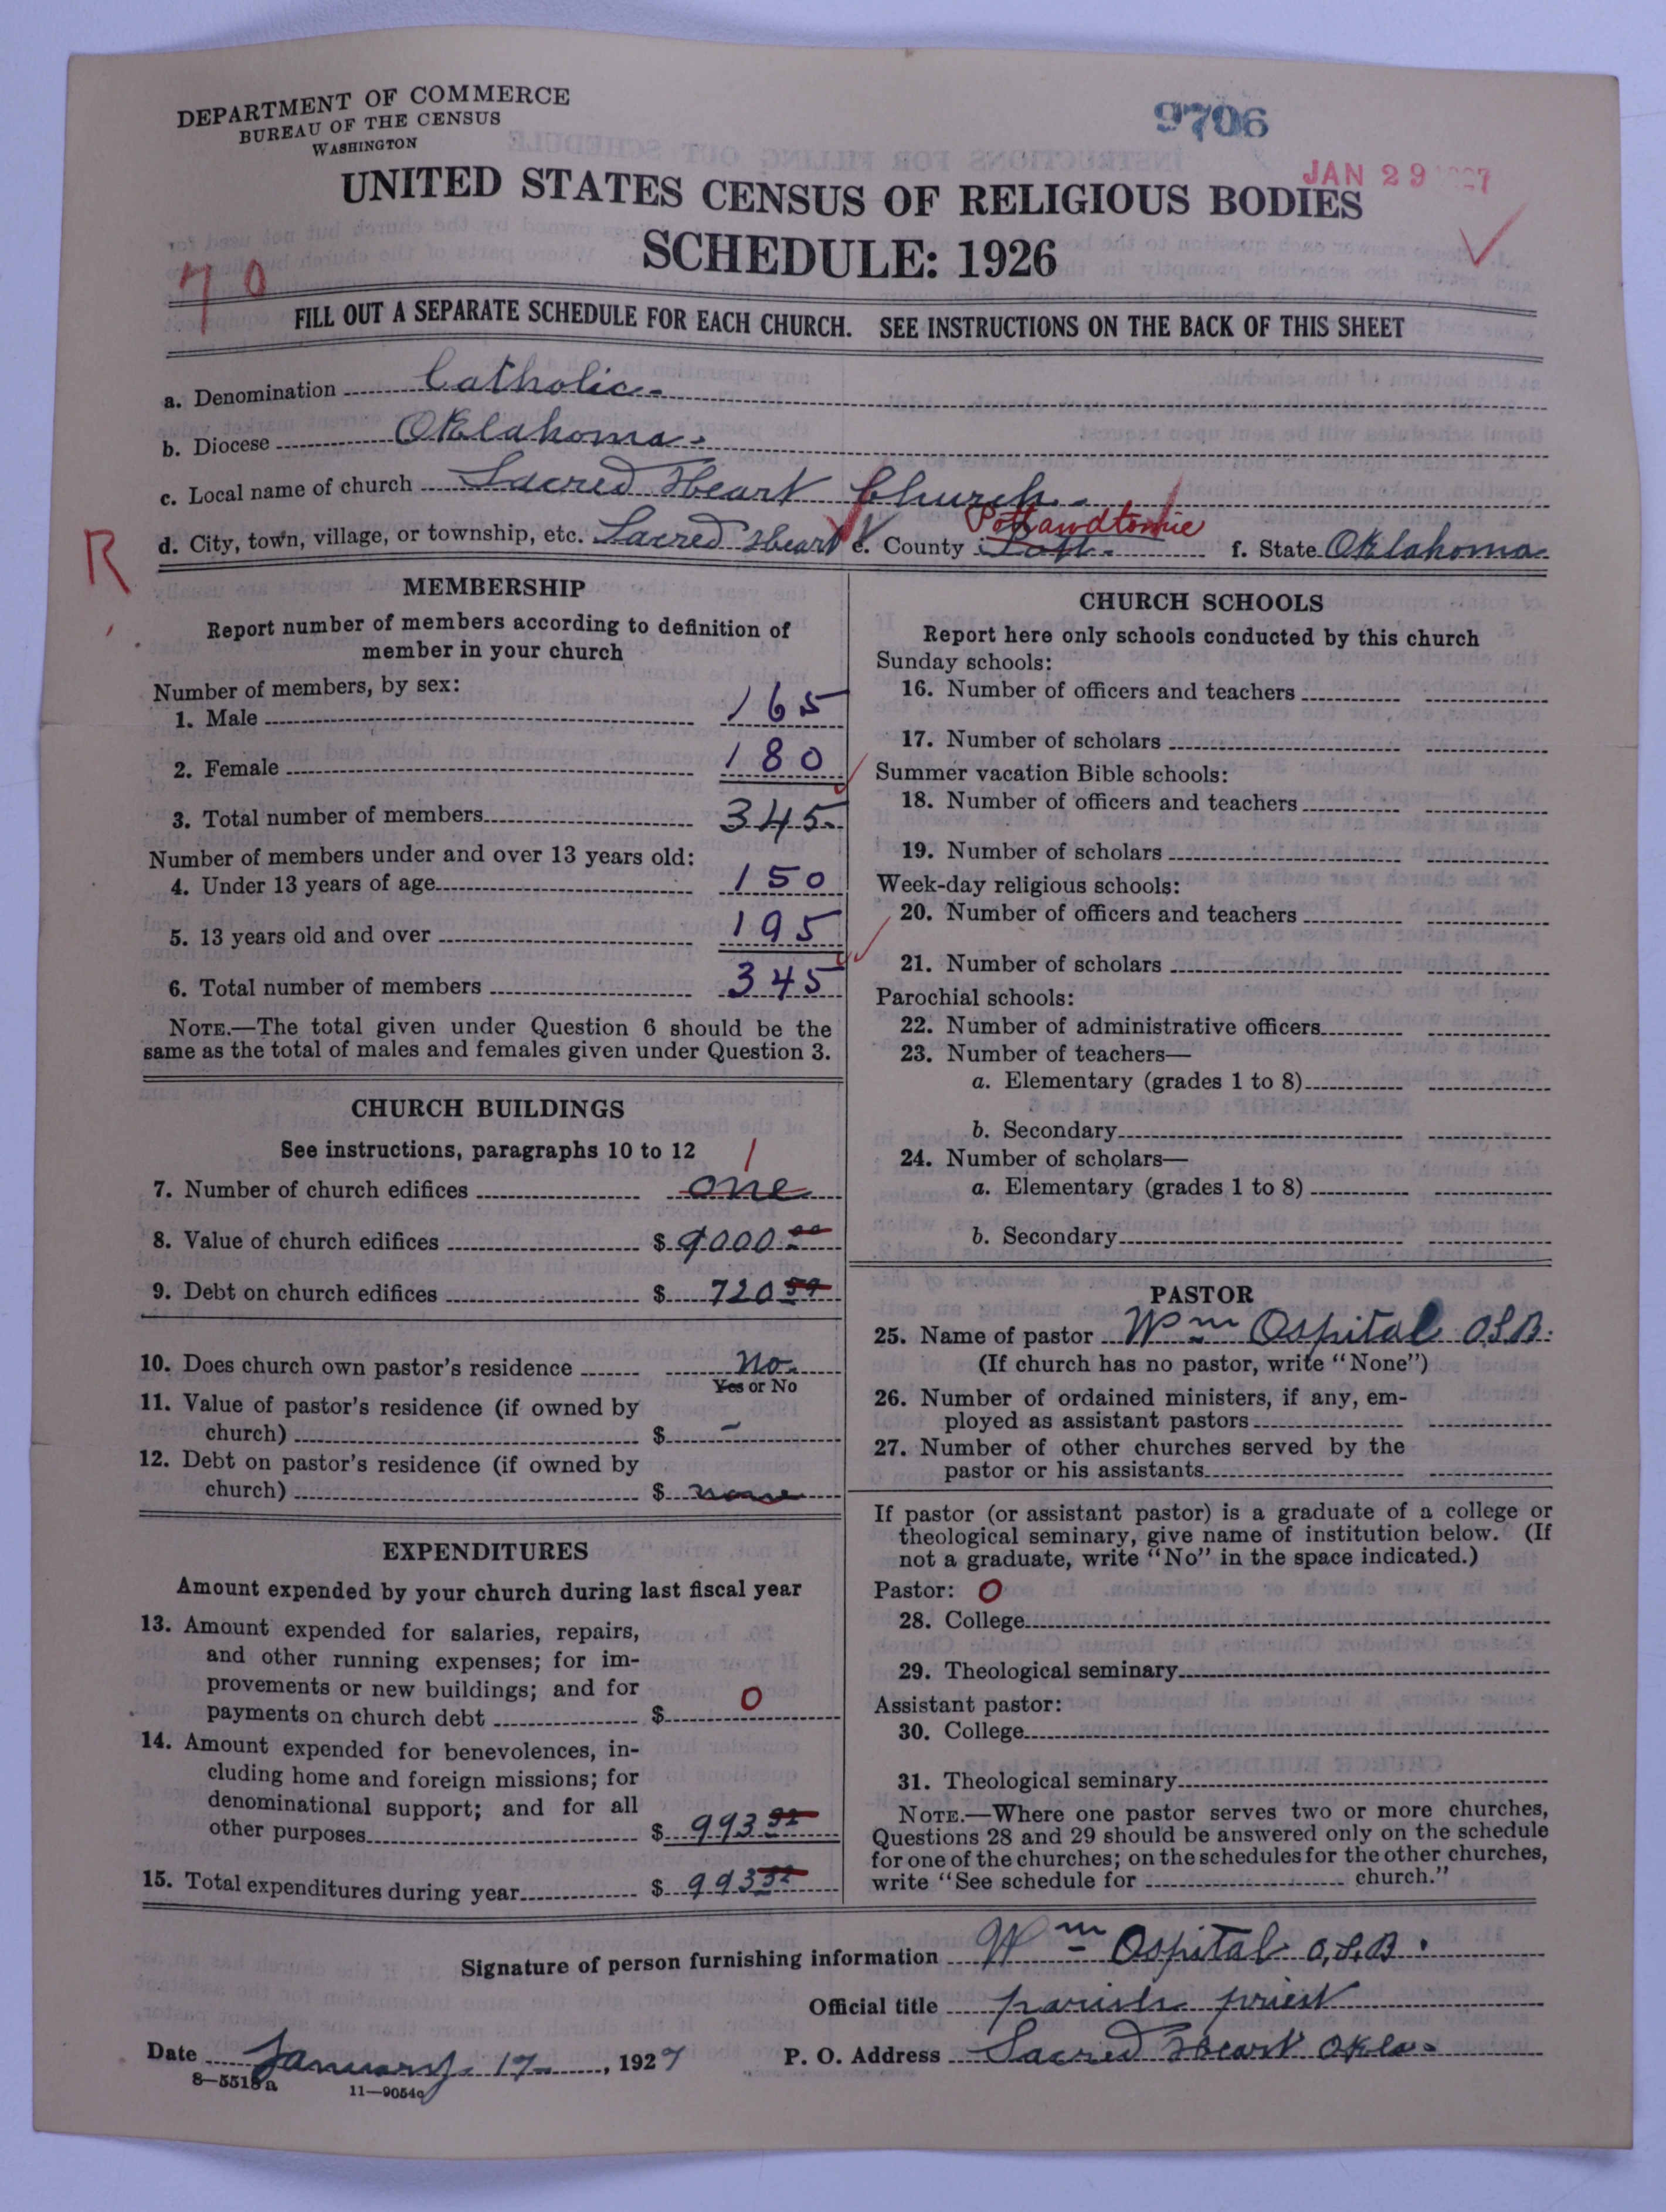 DEPARTMENT OF COMMERCE
BUREAU OF THE CENSUS
WASHINGTON
9706
JAN 29 1927
UNITED STATES CENSUS OF RELIGIOUS BODIES
SCHEDULE: 1926
70
FILL OUT A SEPARATE SCHEDULE FOR EACH CHURCH. SEE INSTRUCTIONS ON THE BACK OF THIS SHEET
a. Denomination Catholic.
b. Diocese Oklahoma.
c. Local name of church Sacred Heart Church.
Pottawdtomie
d. City, town, village, or township, etc. Sacred Heart e. County Pott. f. State Oklahoma
R
MEMBERSHIP
Report number of members according to definition of
member in your church
Number of members, by sex:
1. Male 165
2. Female 180
3. Total number of members 345.
Number of members under and over 13 years old:
4. Under 13 years of age 150
5. 13 years old and over 195
6. Total number of members 345
NOTE.—The total given under Question 6 should be the
same as the total of males and females given under Question 3.
CHURCH BUILDINGS
See instructions, paragraphs 10 to 12
1
7. Number of church edifices one
8. Value of church edifices $ 9000 00
9. Debt on church edifices $ 720 59
10. Does church own pastor's residence no.
Yes or No
11. Value of pastor's residence (if owned by
church) $ –
12. Debt on pastor's residence (if owned by
church) $ none
EXPENDITURES
Amount expended by your church during last fiscal year
13. Amount expended for salaries, repairs,
and other running expenses; for im-
provements or new buildings; and for
payments on church debt $ 0
14. Amount expended for benevolences, in-
cluding home and foreign missions; for
denominational support; and for all
other purposes $ 993 52
15. Total expenditures during year $ 993 52
CHURCH SCHOOLS
Report here only schools conducted by this church
Sunday schools:
16. Number of officers and teachers
17. Number of scholars
Summer vacation Bible schools:
18. Number of officers and teachers
19. Number of scholars
Week-day religious schools:
20. Number of officers and teachers
21. Number of scholars
Parochial schools:
22. Number of administrative officers
23. Number of teachers—
a. Elementary (grades 1 to 8)
b. Secondary
24. Number of scholars—
a. Elementary (grades 1 to 8)
b. Secondary
PASTOR
25. Name of pastor Wm Ospital O.S.B.
(If church has no pastor, write "None")
26. Number of ordained ministers, if any, em-
ployed as assistant pastors
27. Number of other churches served by the
pastor or his assistants
If pastor (or assistant pastor) is a graduate of a college or
theological seminary, give name of institution below. (If
not a graduate, write "No" in the space indicated.)
Pastor: 0
28. College
29. Theological seminary
Assistant pastor:
30. College
31. Theological seminary
NOTE.—Where one pastor serves two or more churches,
Questions 28 and 29 should be answered only on the schedule
for one of the churches; on the schedules for the other churches,
write "See schedule for church."
Signature of person furnishing information Wm Ospital O.S.B.
Official title parish priest
Date January 17, 1927 P. O. Address Sacred Heart Okla.
8—5518a 11—9054a